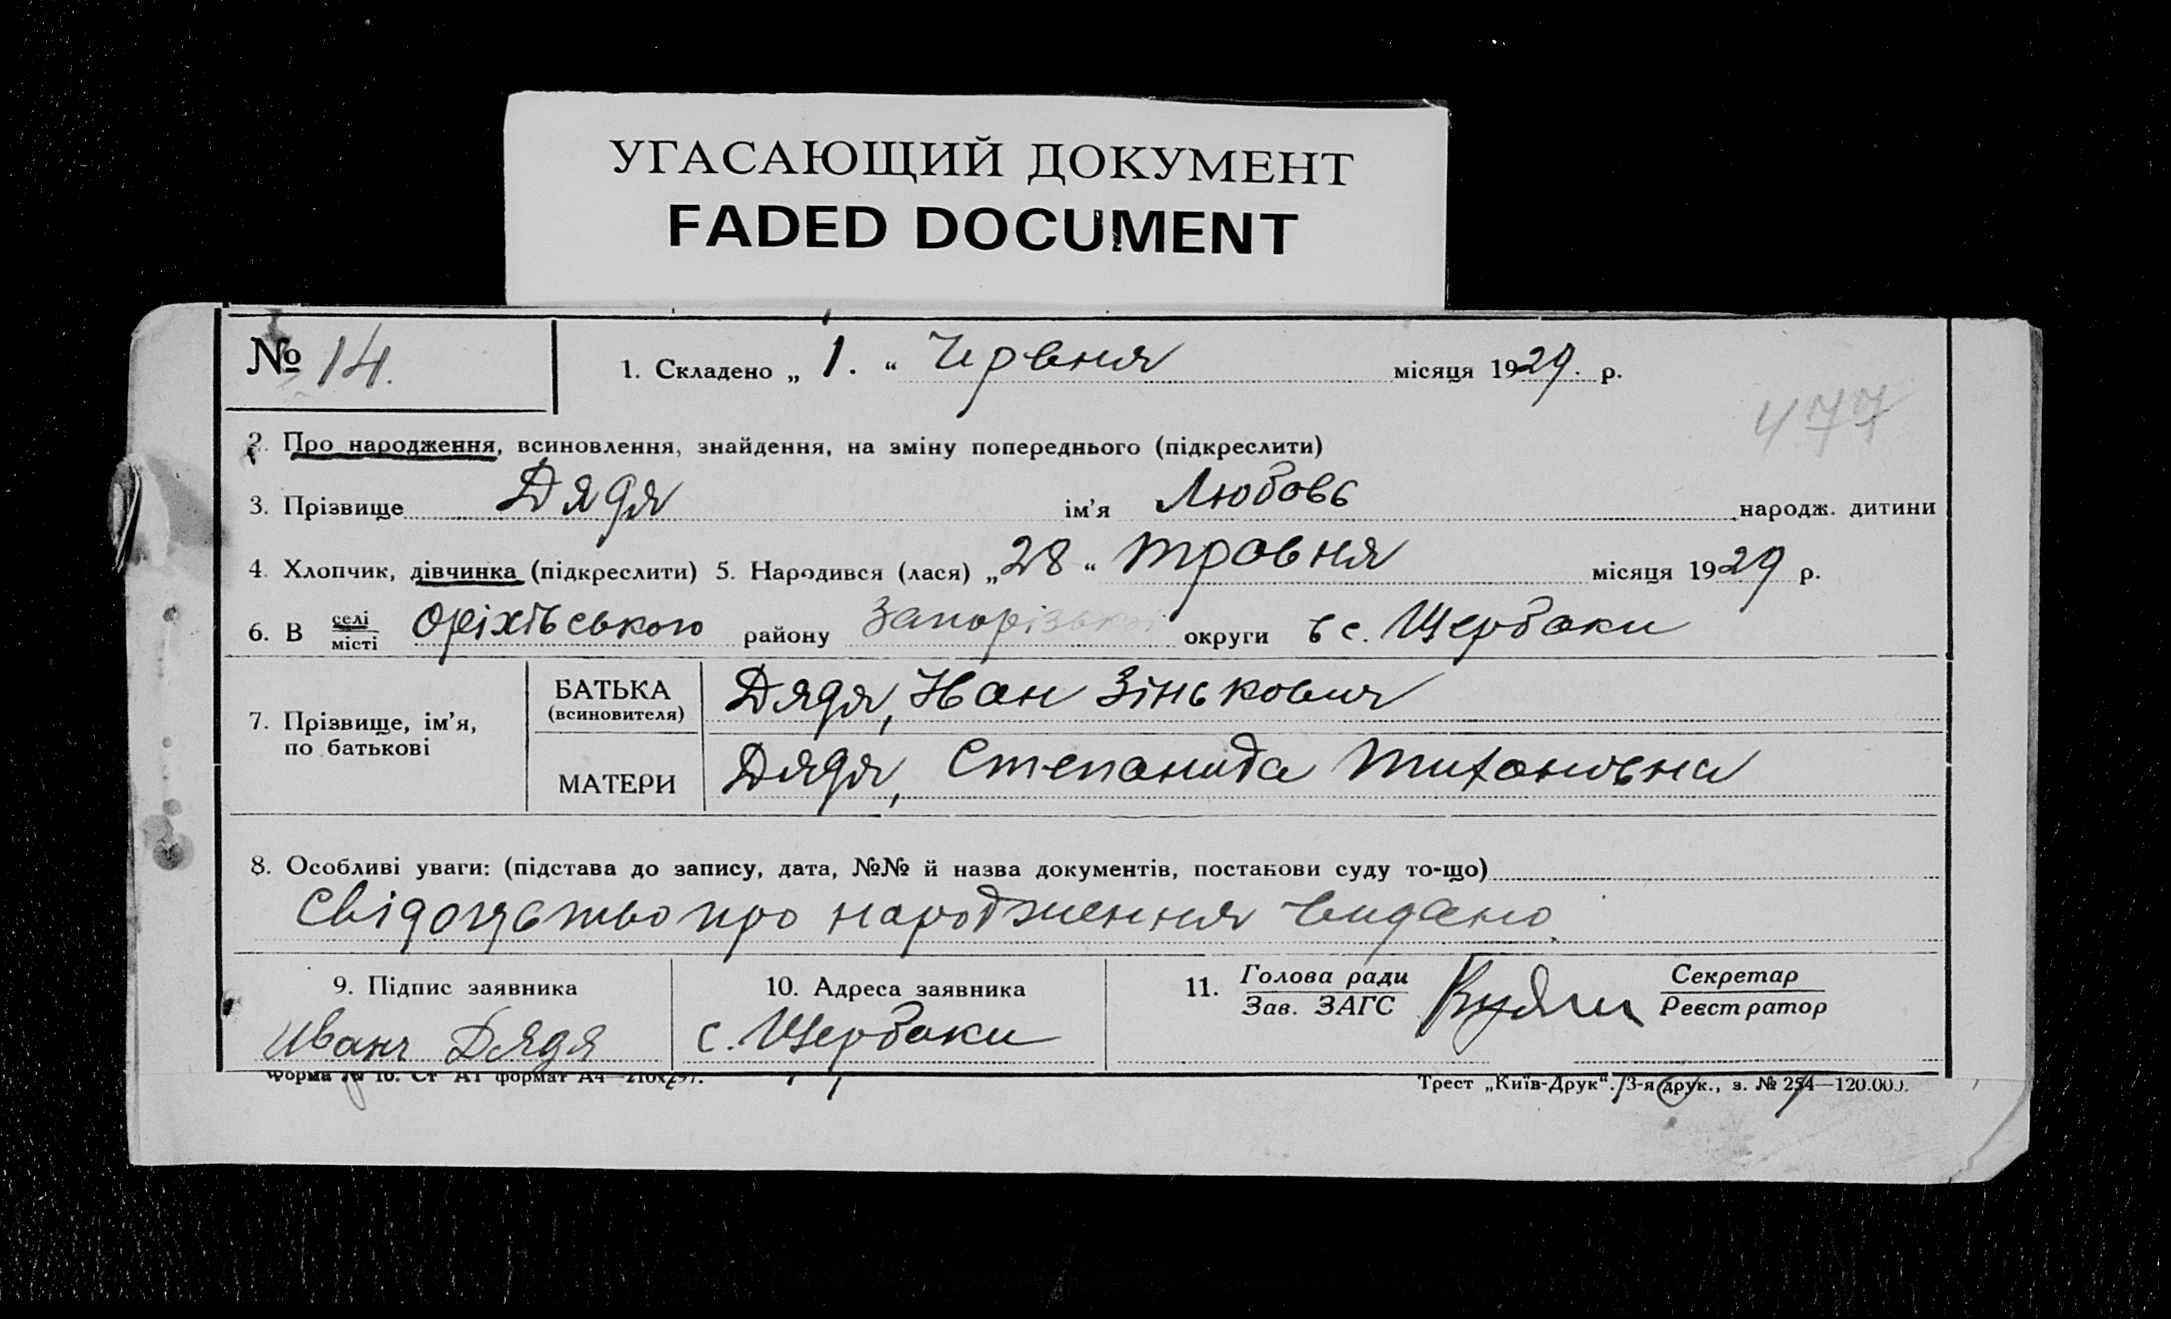 УГАСАЮЩИЙ ДОКУМЕНТ
FADED DOCUMENT
№ 14.
1. Складено „ 1. “ Червня місяця 1929. р.
477
2. Про народження, всиновлення, знайдення, на зміну попереднього (підкреслити)
3. Прізвище Дядя ім'я Любовь народж. дитини
4. Хлопчик, дівчинка (підкреслити) 5. Народився (лася) „28“ травня місяця 1929 р.
6. В селі місті Оріхівського району Запорізької округи в с. Щербаки
7. Прізвище, ім'я, по батькові
БАТЬКА (всиновителя) Дядя, Иван Зінькович
МАТЕРИ Дядя, Степанида Тихоновна
8. Особливі уваги: (підстава до запису, дата, №№ й назва документів, постанови суду то-що)
Свідоцьство про народження видано.
9. Підпис заявника
Иванъ Дядя
10. Адреса заявника
с. Щербаки
11. Голова ради Зав. ЗАГС
Секретар Реєстратор
Форма № 10. Ст А1 формат А4—210х297.
Трест „Київ-Друк“. 3-я друк., з. № 254—120.000.